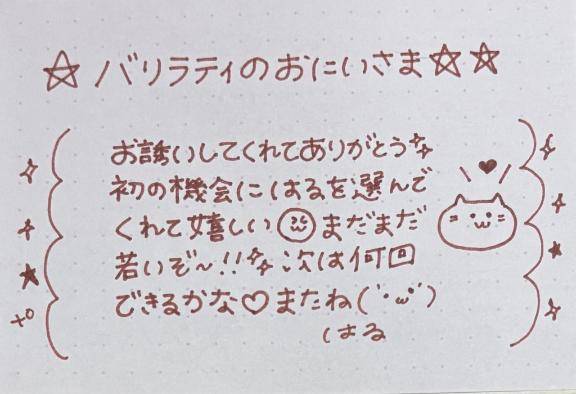 ☆バリラティのおにいさま☆☆
お誘いしてくれてありがとう✨
初の機会にはるを選んで
くれて嬉しい😊まだまだ
若いぞ〜!!✨次は何回
できるかな♡またね(´･ω･`)
はる